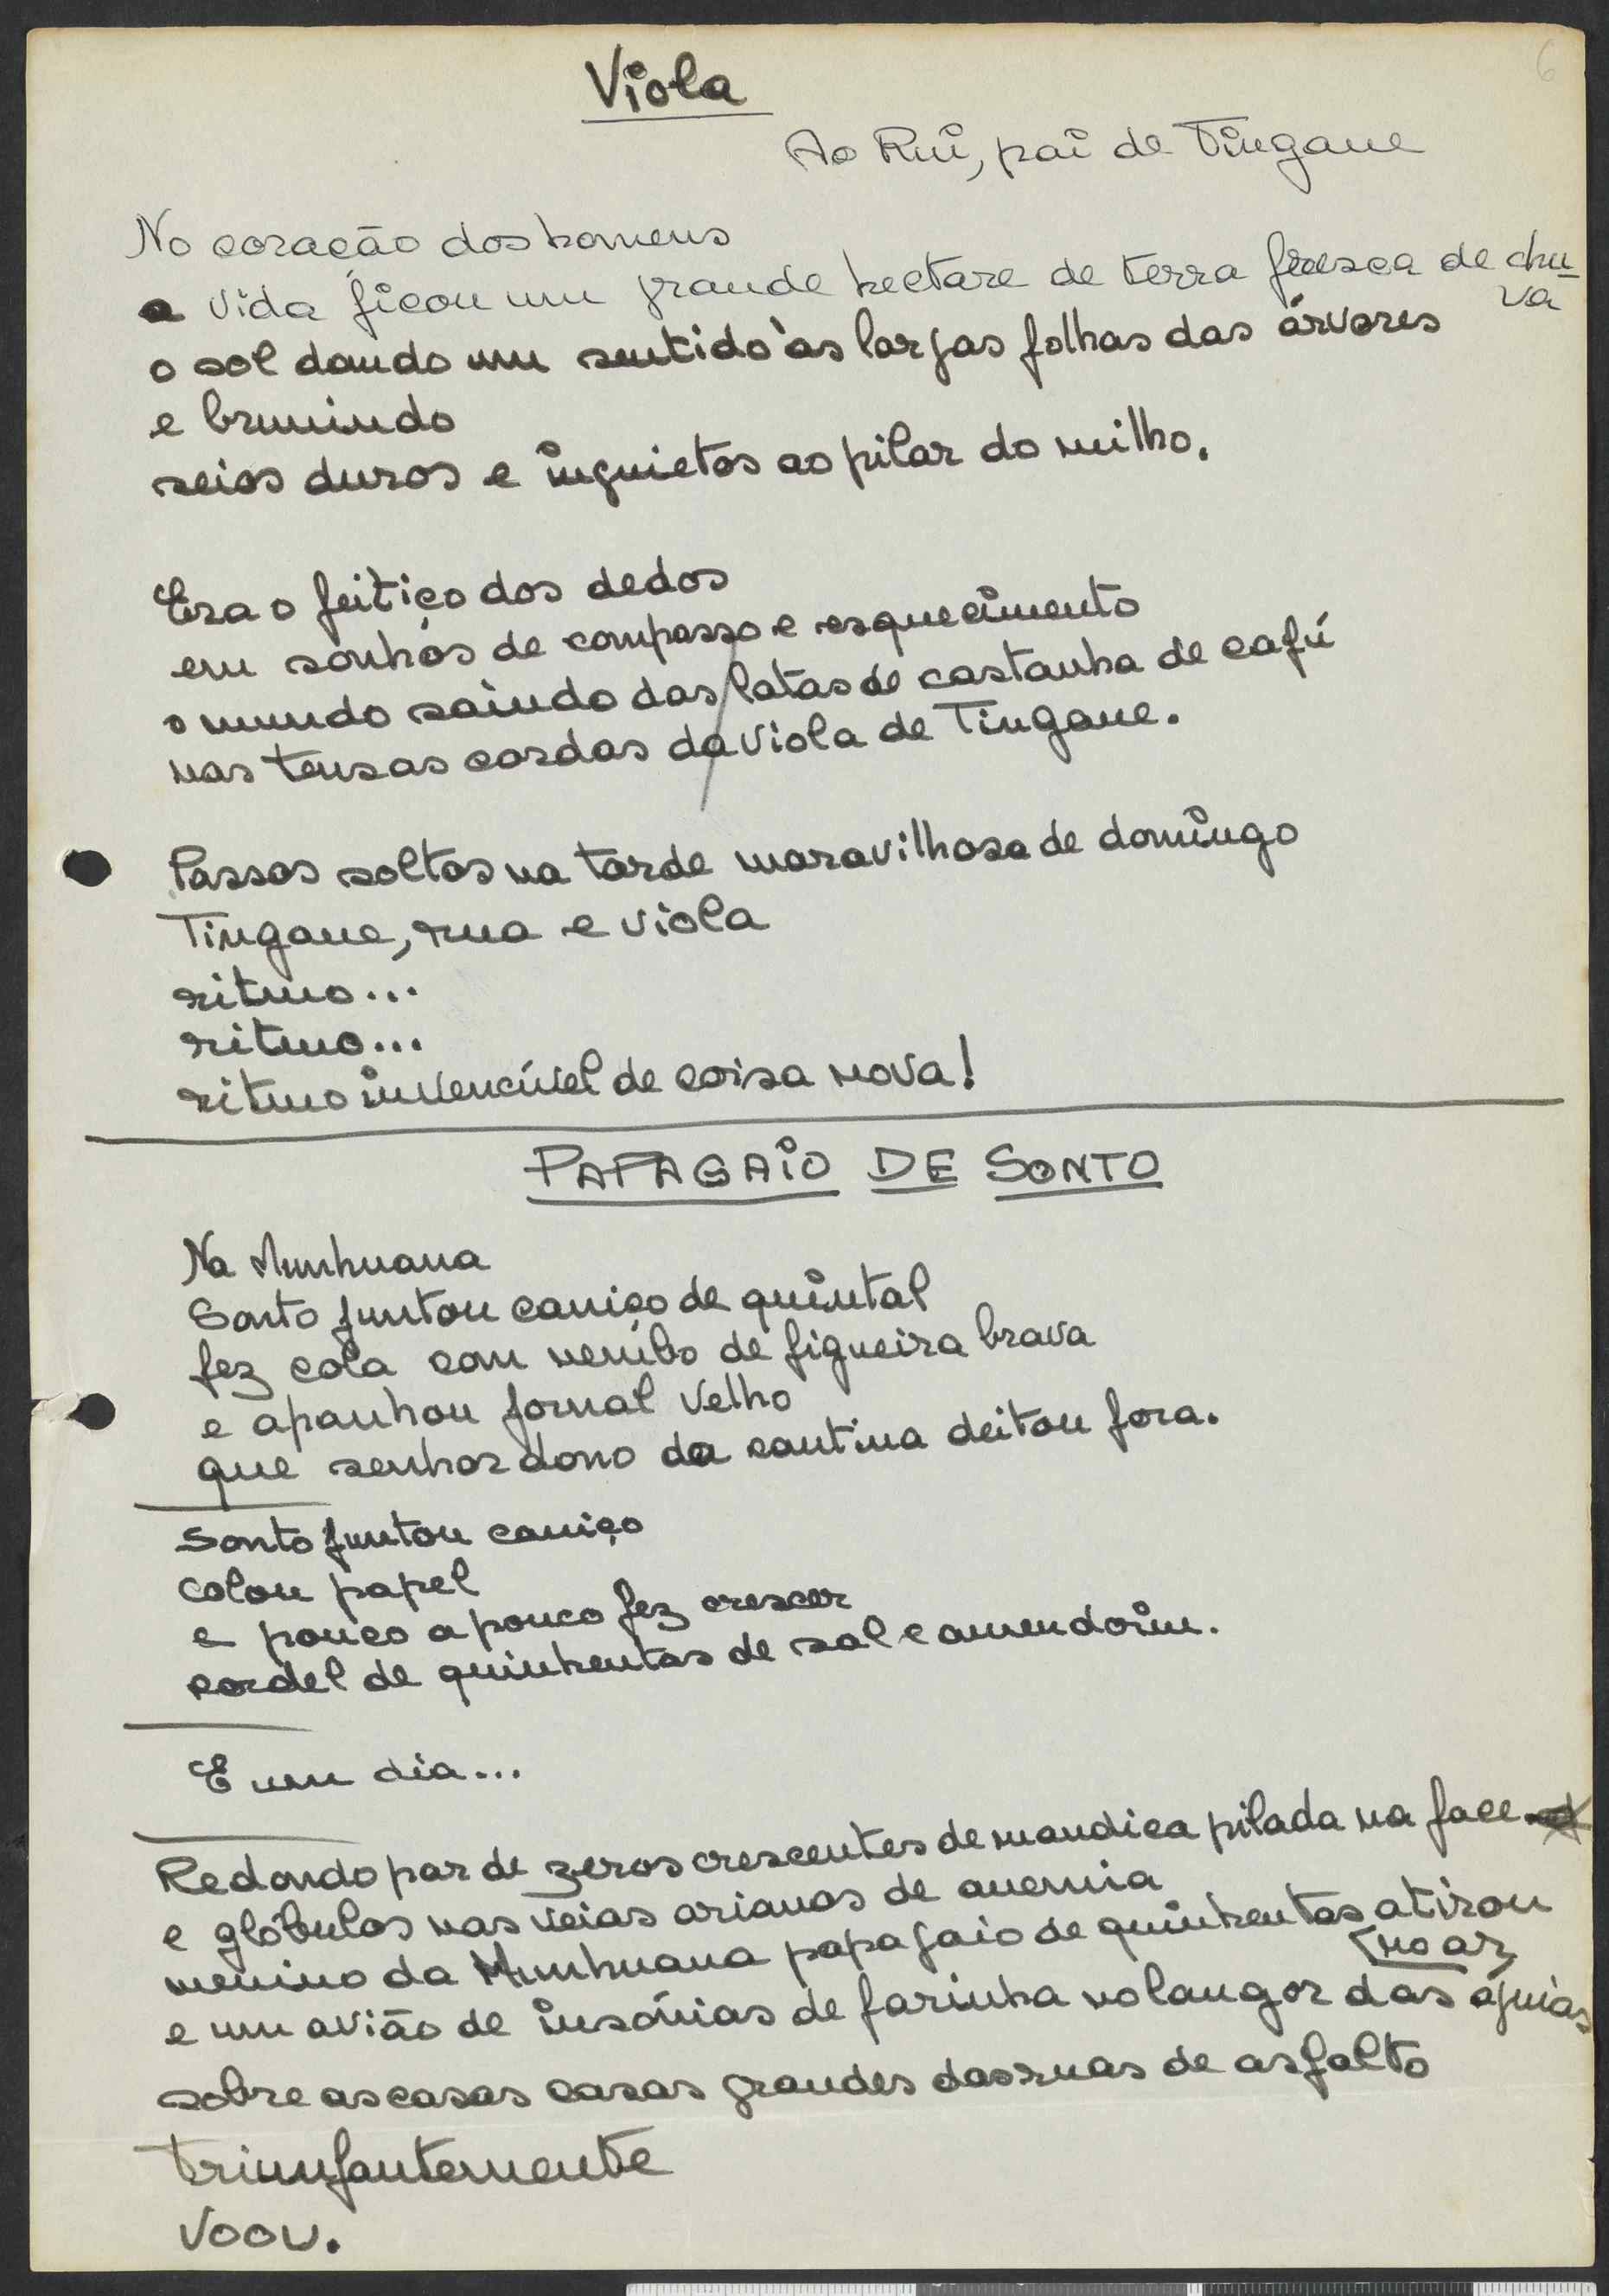 6
Viola
Ao Rui, pai de Tingane
No coração dos homens
a vida ficou um grande hectare de terra fresca de chu-
va
o sol dando um sentido às largas folhas das árvores
e brunindo
seios duros e inquietos ao pilar do milho.
Era o feitiço dos dedos
em sonhos de compasso e esquecimento
o mundo saindo das latas de castanha de cajú
nas tensas cordas da viola de Tingane.
Passos soltos na tarde maravilhosa de domingo
Tingane, rua e viola
ritmo...
ritmo...
ritmo invencível de coisa nova!
PAPAGAIO DE SONTO
Na Munhuana
Sonto juntou caniço de quintal
fez cola com nembo de figueira brava
e apanhou jornal velho
que senhor dono da cantina deitou fora.
Sonto juntou caniço
colou papel
e pouco a pouco fez crescer
cordel de quinhentas de sal e amendoim.
E um dia...
Redondo par de zeros crescentes de mandica pilada na face
e glóbulos nas veias arianos de anemia
menino da Munhuana papagaio de quinhentas atirou
no ar
e um avião de insónias de farinha no langor das águias
sobre as casas casas grandes das ruas de asfalto
triunfantemente
voou.